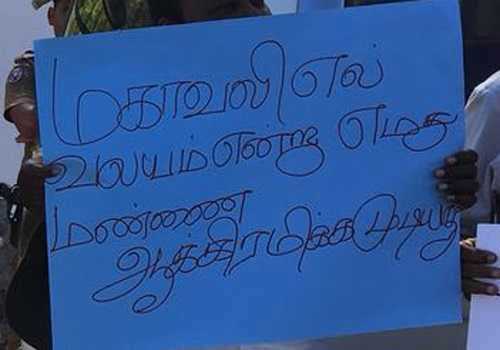 மகாவலி எல்
வலயம் என்று எமது
மண்ணை
ஆக்கிரமிக்க முடியாது